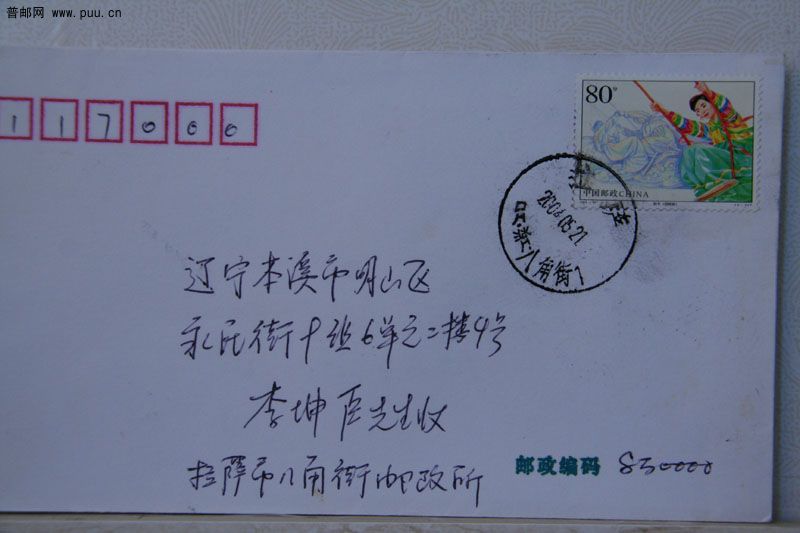 普邮网 www.puu.cn
117000
80分
中国邮政CHINA
西藏
2004.05.21
八角街
辽宁本溪市明山区
永民街十组6单元二楼4号
李坤臣先生收
拉萨市八角街邮政所
邮政编码 850000